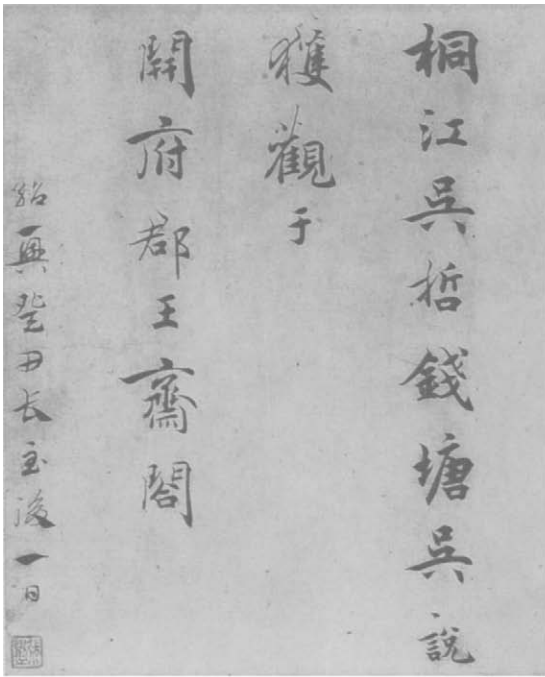 桐江吳哲錢塘吳說
獲觀于
開府郡王齋閤
紹興癸丑長至後一日